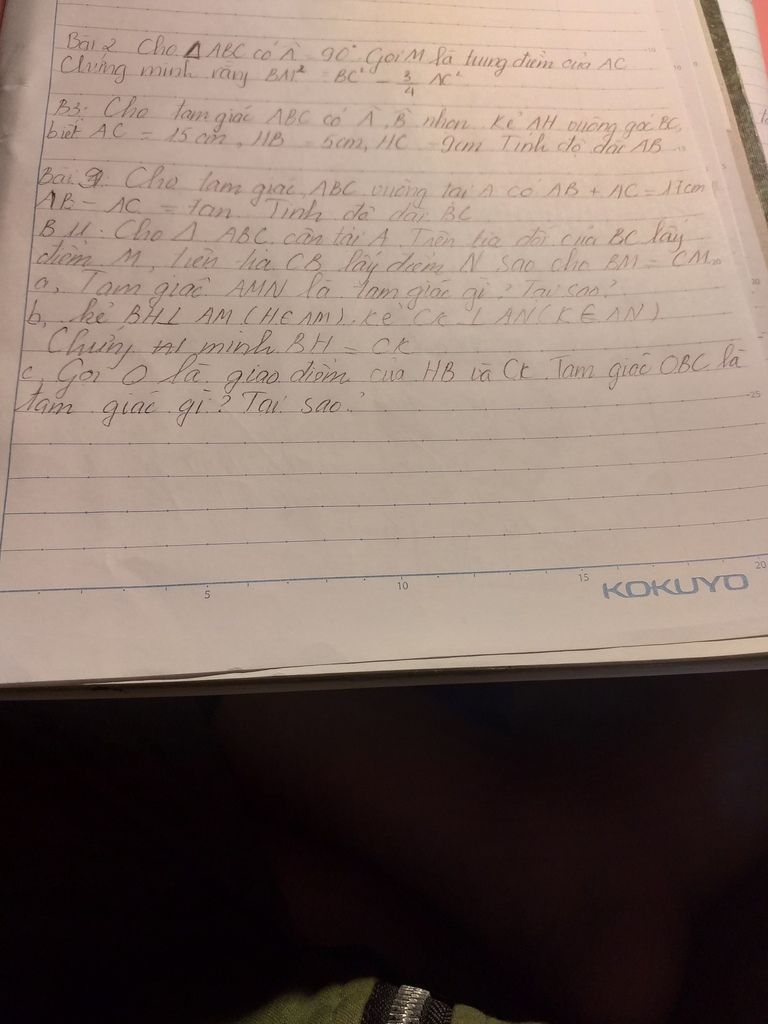 Bài 2 Cho Δ ABC có Â = 90° Gọi M là trung điểm của AC
Chứng minh rằng BM² = BC² - 3/4 AC²
B3: Cho tam giác ABC có Â, B nhọn. Kẻ AH vuông góc BC,
biết AC = 15 cm, HB = 5cm, HC = 9cm Tính độ dài AB
Bài: Cho tam giác ABC vuông tại A có AB + AC = 17cm
AB - AC = Tính độ dài BC
B 4: Cho Δ ABC cân tại A Trên tia đối của BC lấy
điểm M, trên tia CB lấy điểm N sao cho BM = CM
a, Tam giác AMN là tam giác gì? Tại sao?
b, kẻ BH⊥ AM (H∈ AM), kẻ CK ⊥ AN (K ∈ AN)
Chứng minh BH = CK
c, Gọi O là giao điểm của HB và CK Tam giác OBC là
tam giác gì? Tại sao?
5 10 15 20
KOKUYO